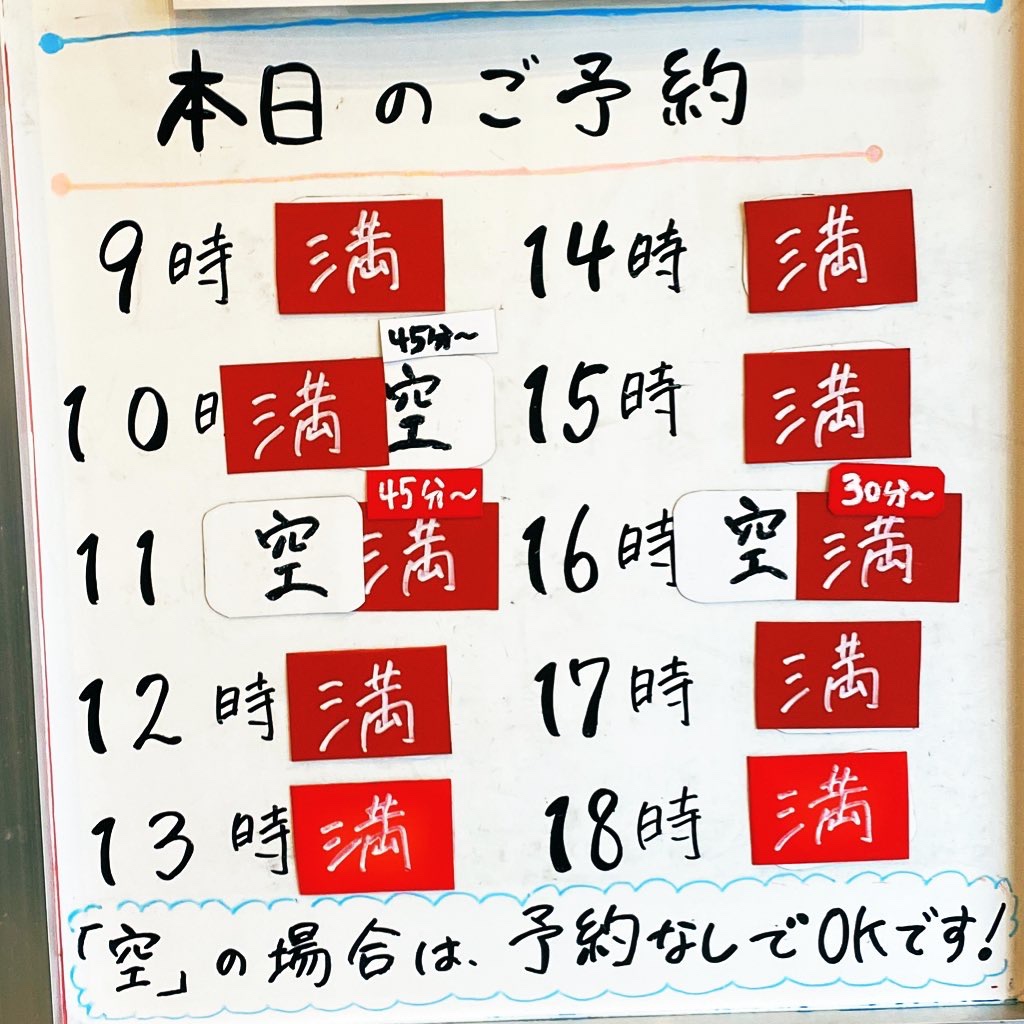 本日のご予約
9時 満
45分〜
10日 満 空
45分〜
11 空 満
12時 満
13時 満
14時 満
15時 満
30分〜
16時 空 満
17時 満
18時 満
「空」の場合は、予約なしでOKです!